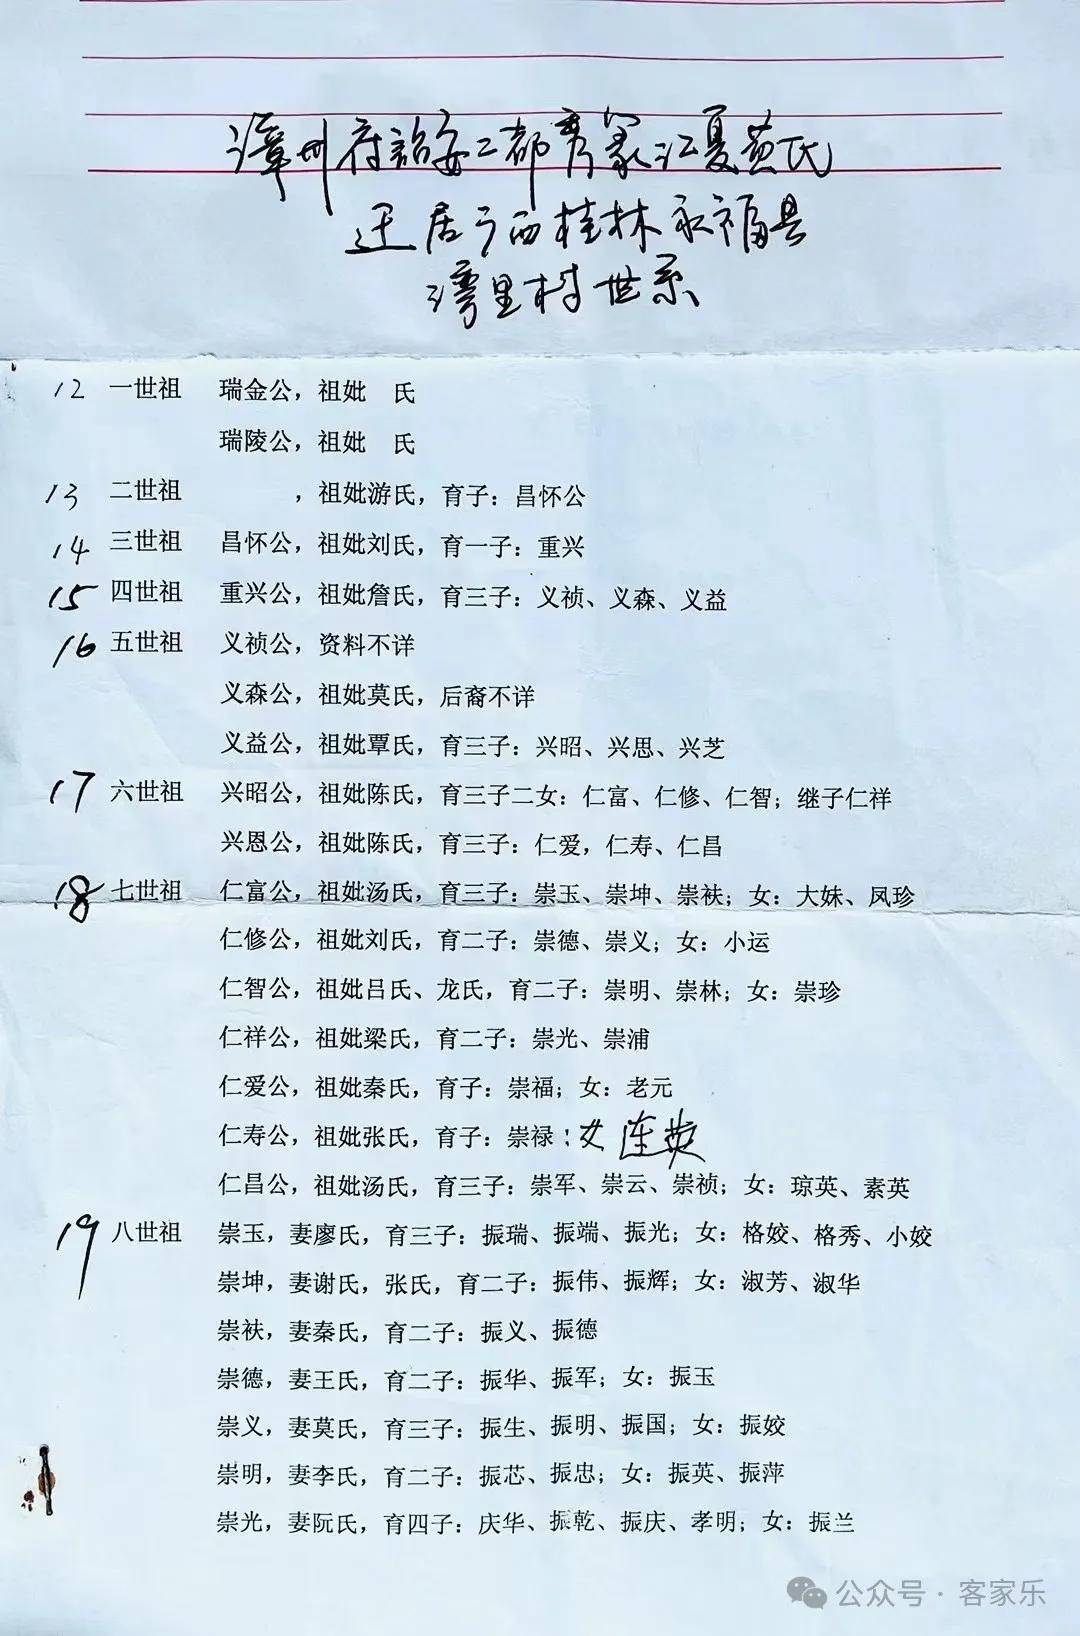 漳州府诏安二都秀篆江夏黄氏
迁居广西桂林永福县
湾里村世系
12 一世祖 瑞金公，祖妣 氏
瑞陵公，祖妣 氏
13 二世祖 ，祖妣游氏，育子：昌怀公
14 三世祖 昌怀公，祖妣刘氏，育一子：重兴
15 四世祖 重兴公，祖妣詹氏，育三子：义祯、义森、义益
16 五世祖 义祯公，资料不详
义森公，祖妣莫氏，后裔不详
义益公，祖妣覃氏，育三子：兴昭、兴思、兴芝
17 六世祖 兴昭公，祖妣陈氏，育三子二女：仁富、仁修、仁智；继子仁祥
兴恩公，祖妣陈氏，育三子：仁爱，仁寿、仁昌
18 七世祖 仁富公，祖妣汤氏，育三子：崇玉、崇坤、崇袄；女：大妹、凤珍
仁修公，祖妣刘氏，育二子：崇德、崇义；女：小运
仁智公，祖妣吕氏、龙氏，育二子：崇明、崇林；女：崇珍
仁祥公，祖妣梁氏，育二子：崇光、崇浦
仁爱公，祖妣秦氏，育子：崇福；女：老元
仁寿公，祖妣张氏，育子：崇禄；女连英
仁昌公，祖妣汤氏，育三子：崇军、崇云、崇祯；女：琼英、素英
19 八世祖 崇玉，妻廖氏，育三子：振瑞、振端、振光；女：格姣、格秀、小姣
崇坤，妻谢氏，张氏，育二子：振伟、振辉；女：淑芳、淑华
崇袄，妻秦氏，育二子：振义、振德
崇德，妻王氏，育二子：振华、振军；女：振玉
崇义，妻莫氏，育三子：振生、振明、振国；女：振姣
崇明，妻李氏，育二子：振芯、振忠；女：振英、振萍
崇光，妻阮氏，育四子：庆华、振乾、振庆、孝明；女：振兰
公众号·客家乐